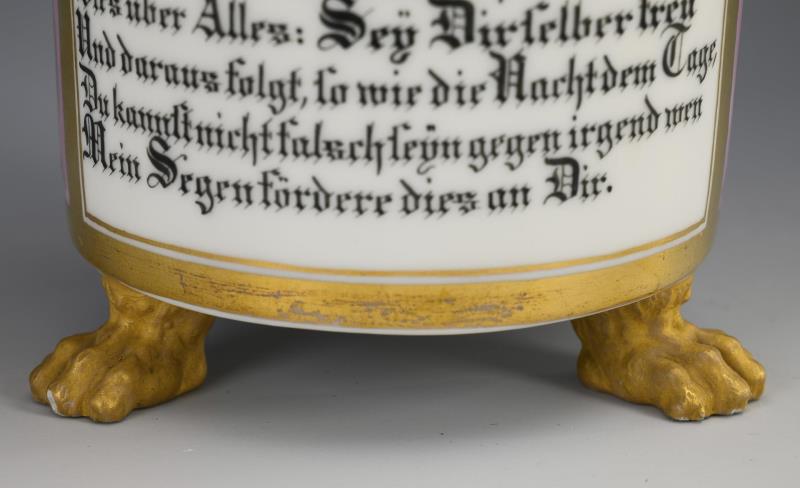 über Alles: Seÿ Dir selber treu
Und daraus folgt, so wie die Nacht dem Tage,
Du kannst nicht falsch seÿn gegen irgend wen
Mein Segen fördere dies an Dir.